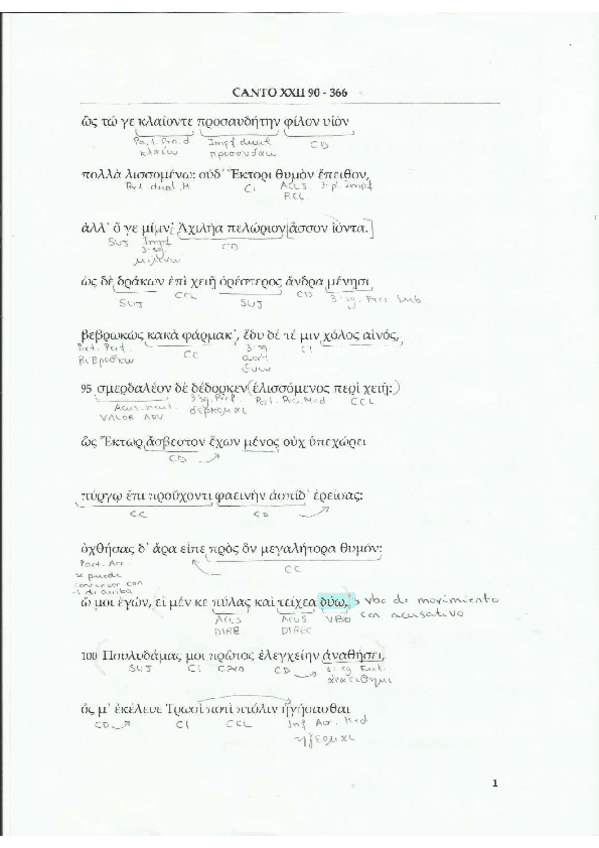 CANTO XXII 90 - 366
ὣς τώ γε κλαίοντε προσαυδήτην φίλον υἱὸν
Part. Pre. d. Impf dual CD
κλαίω προσαυδάω
πολλὰ λισσομένω: οὐδ' Ἕκτορι θυμὸν ἔπειθον,
Prt. dual. M CI ACUS 3ª pl Impf
REL
ἀλλ' ὅ γε μίμν' Ἀχιλῆα πελώριον [ἆσσον ἰόντα.]
SUJ Impf CD
3ª sg.
μίμνω
ὡς δὲ δράκων ἐπὶ χειῇ ὀρέστερος ἄνδρα μένησι
SUJ CCL SUJ CD 3ª sg. Pres Sub.
βεβρωκὼς κακὰ φάρμακ', ἔδυ δέ τέ μιν χόλος αἰνός,
Part. Perf. CC 3ª sg CI
βιβρώσκω
95 σμερδαλέον δὲ δέδορκεν (ἑλισσόμενος περὶ χειῇ:)
Acus. neut. 3ª sg. Perf. Part. Pre. Med CCL
VALOR ADV δέρκομαι
ὣς Ἕκτωρ ἄσβεστον ἔχων μένος οὐχ ὑπεχώρει
CD
πύργῳ ἔπι προὔχοντι φαεινὴν ἀσπίδ' ἐρείσας:
CC CD
ὀχθήσας δ' ἄρα εἶπε πρὸς ὃν μεγαλήτορα θυμόν:
Part. Aor. CC
se puede
concertar con
s de arriba
ὤ μοι ἐγών, εἰ μέν κε πύλας καὶ τείχεα δύω, vbo de movimiento
ACUS ACUS VBO con acusativo
DIRE DIREC
100 Πουλυδάμας μοι πρῶτος ἐλεγχείην ἀναθήσει,
SUJ CI CPVO CD 3ª sg Fut.
ἀνατίθημι
ὅς μ' ἐκέλευε Τρωσὶ ποτὶ πτόλιν ἡγήσασθαι
CD CI CCL Inf. Aor. Med
ἡγέομαι
1